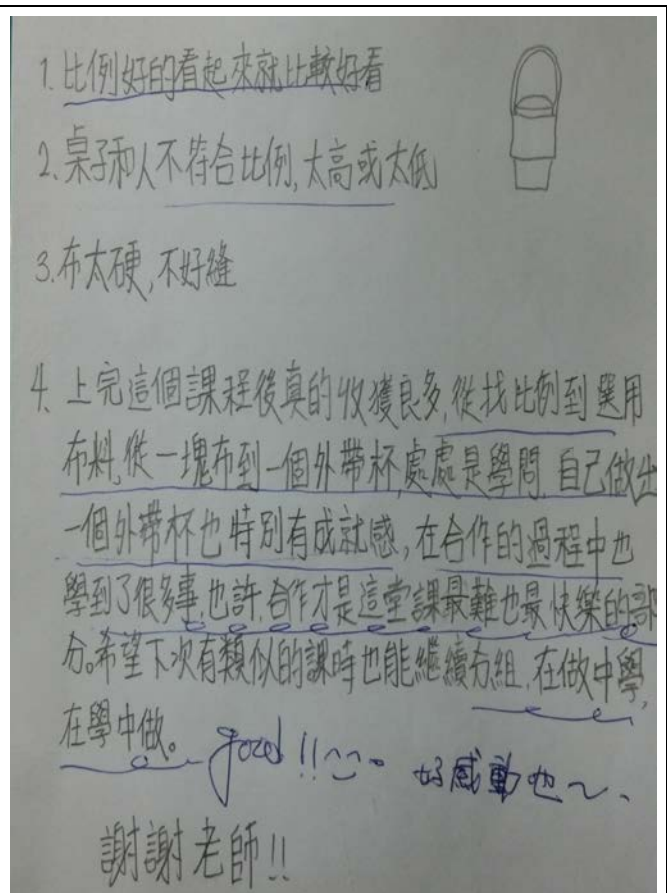 1. 比例好的看起來就比較好看
2. 桌子和人不符合比例, 太高或太低
3. 布太硬, 不好縫
4. 上完這個課程後真的收獲良多, 從找比例到選用
布料, 從一塊布到一個外帶杯, 處處是學問, 自己做出
一個外帶杯也特別有成就感, 在合作的過程中也
學到了很多事, 也許, 合作才是這堂課最難也最快樂的部
分。希望下次有類似的課時也能繼續分組, 在做中學,
在學中做。
good !! ^^。 好感動也~、
謝謝老師!!